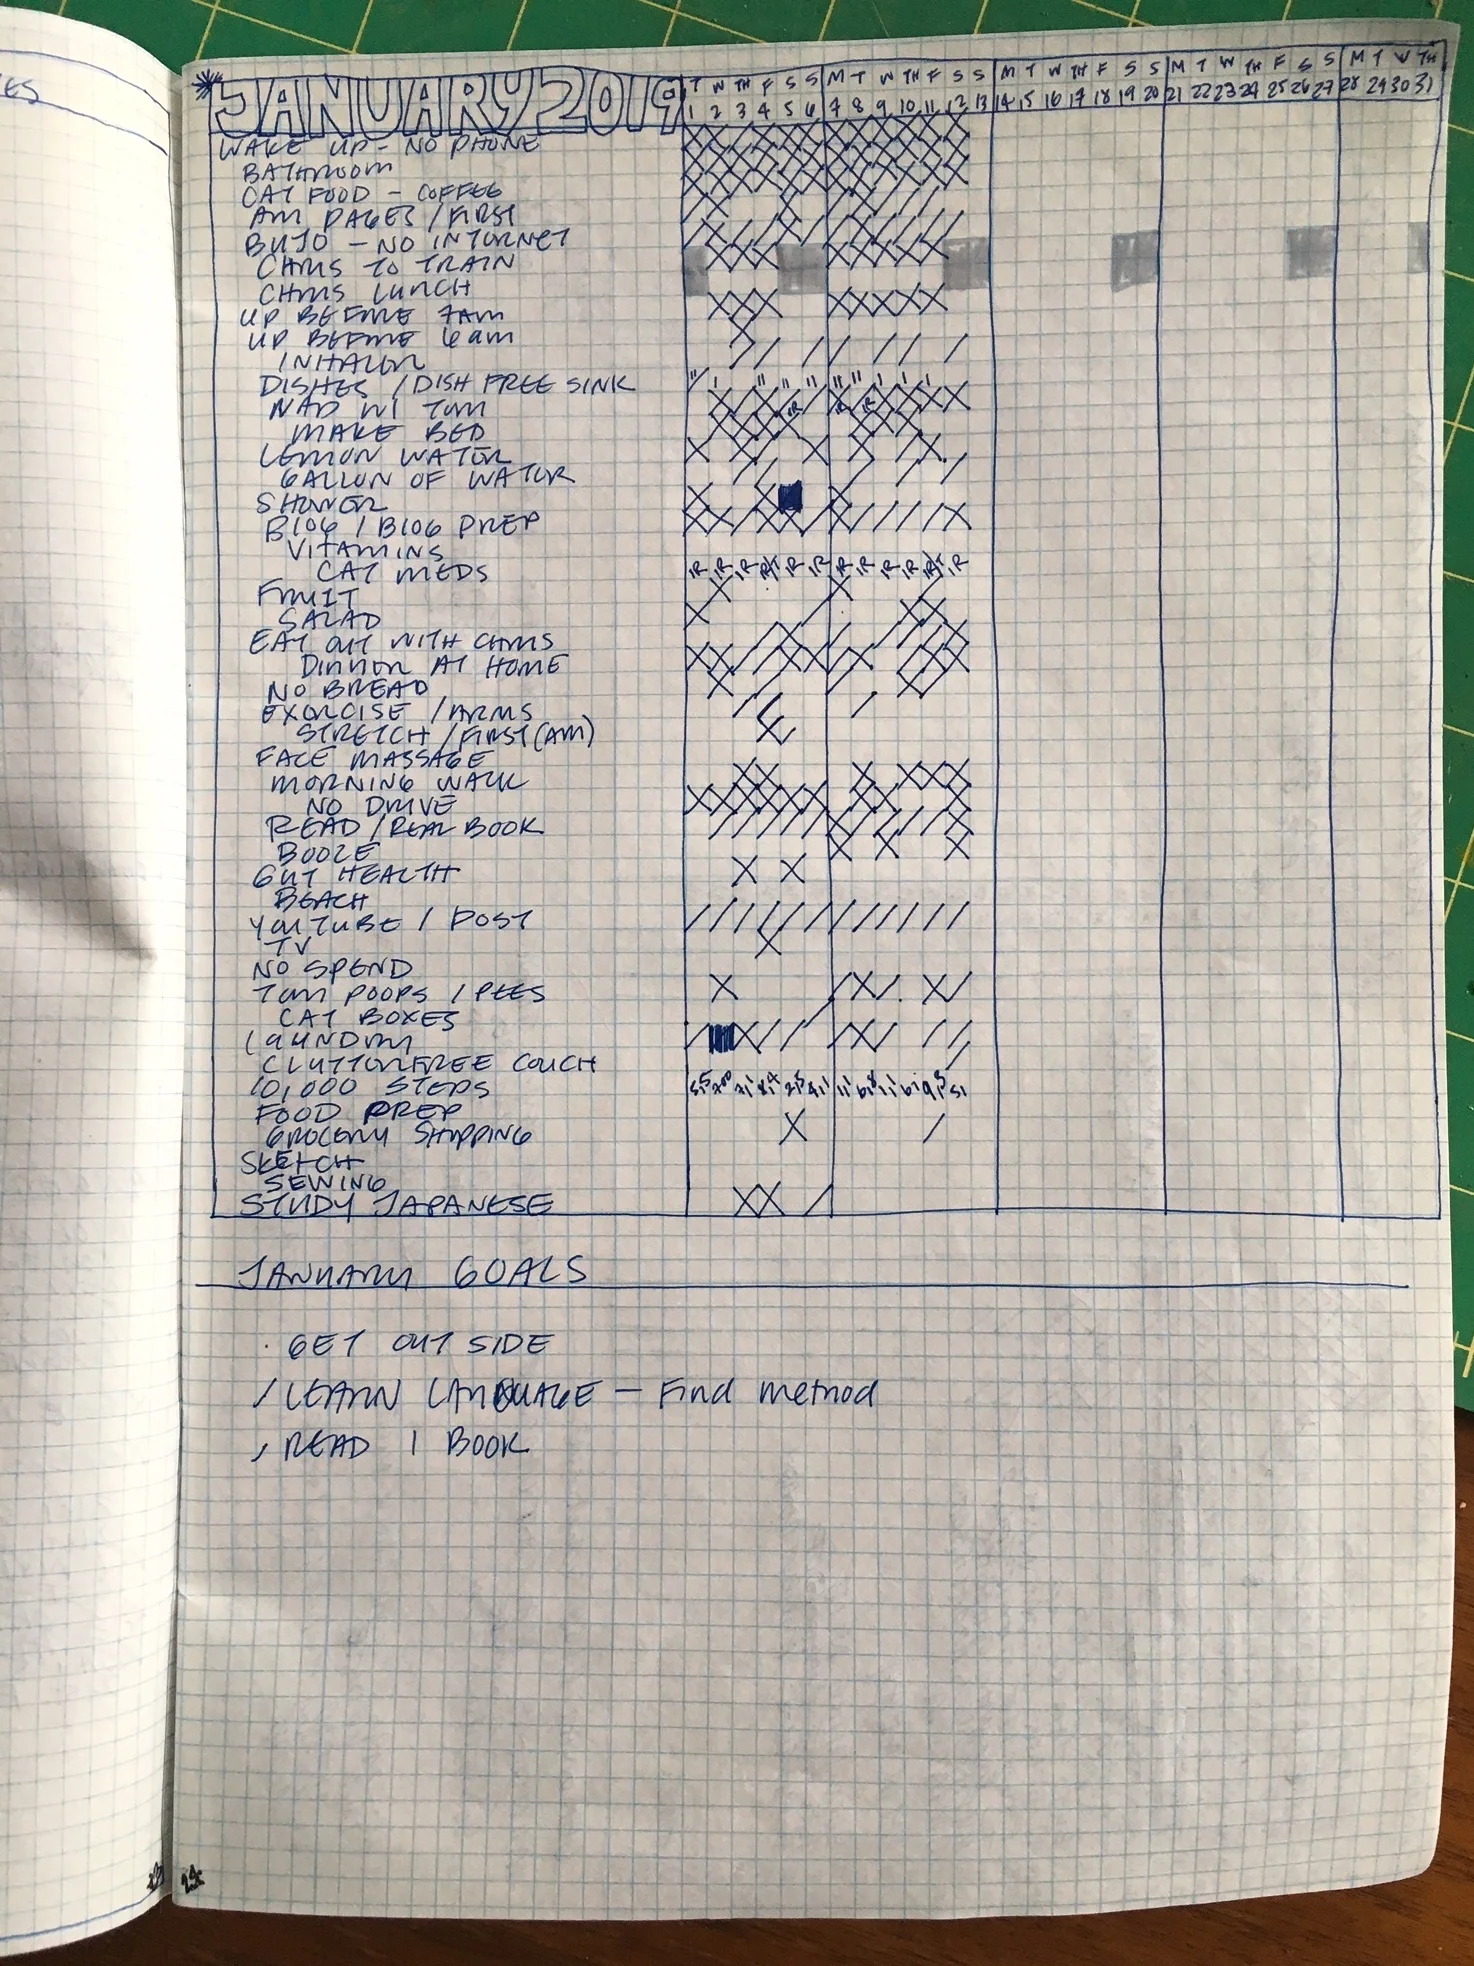 ES
JANUARY 2019 T W TH F S S M T W TH F S S M T W TH F S S M T W TH F S S M T W TH
1 2 3 4 5 6 7 8 9 10 11 12 13 14 15 16 17 18 19 20 21 22 23 24 25 26 27 28 29 30 31
WAKE UP - NO PHONE
BATHROOM
CAT FOOD - COFFEE
AM PAGES / FIRST
BUJO - NO INTERNET
CHRIS TO TRAIN
CHRIS LUNCH
UP BEFORE 7am
UP BEFORE 6am
INHALER
DISHES / DISH FREE SINK
NAP W/ TOM
MAKE BED
LEMON WATER
GALLON OF WATER
SHOWER
BLOG / BLOG PREP
VITAMINS
CAT MEDS
FRUIT
SALAD
EAT OUT WITH CHRIS
DINNER AT HOME
NO BREAD
EXERCISE / ARMS
STRETCH / FIRST (AM)
FACE MASSAGE
MORNING WALK
NO DRIVE
READ / REAL BOOK
BOOZE
GUT HEALTH
BEACH
YOUTUBE / POST
TV
NO SPEND
TOM POOPS / PEES
CAT BOXES
LAUNDRY
CLUTTER FREE COUCH
10,000 STEPS
FOOD PREP
GROCERY SHOPPING
SKETCH
SEWING
STUDY JAPANESE
JANUARY GOALS
· GET OUTSIDE
/ LEARN LANGUAGE — Find method
/ READ 1 BOOK